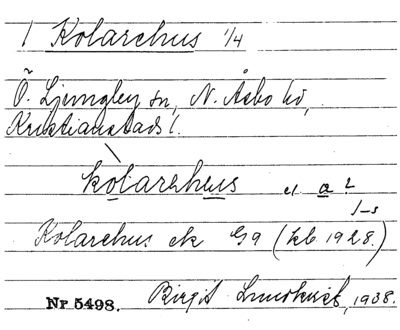 1 Kolarehus 1/4
Ö. Ljungby sn, N. Åsbo hd,
Kristianstads l.
kolarehus el a?
J-s
Kolarehus ek Gg (kb 1928.)
Nr 5498. Birgit Lundkvist, 1938.